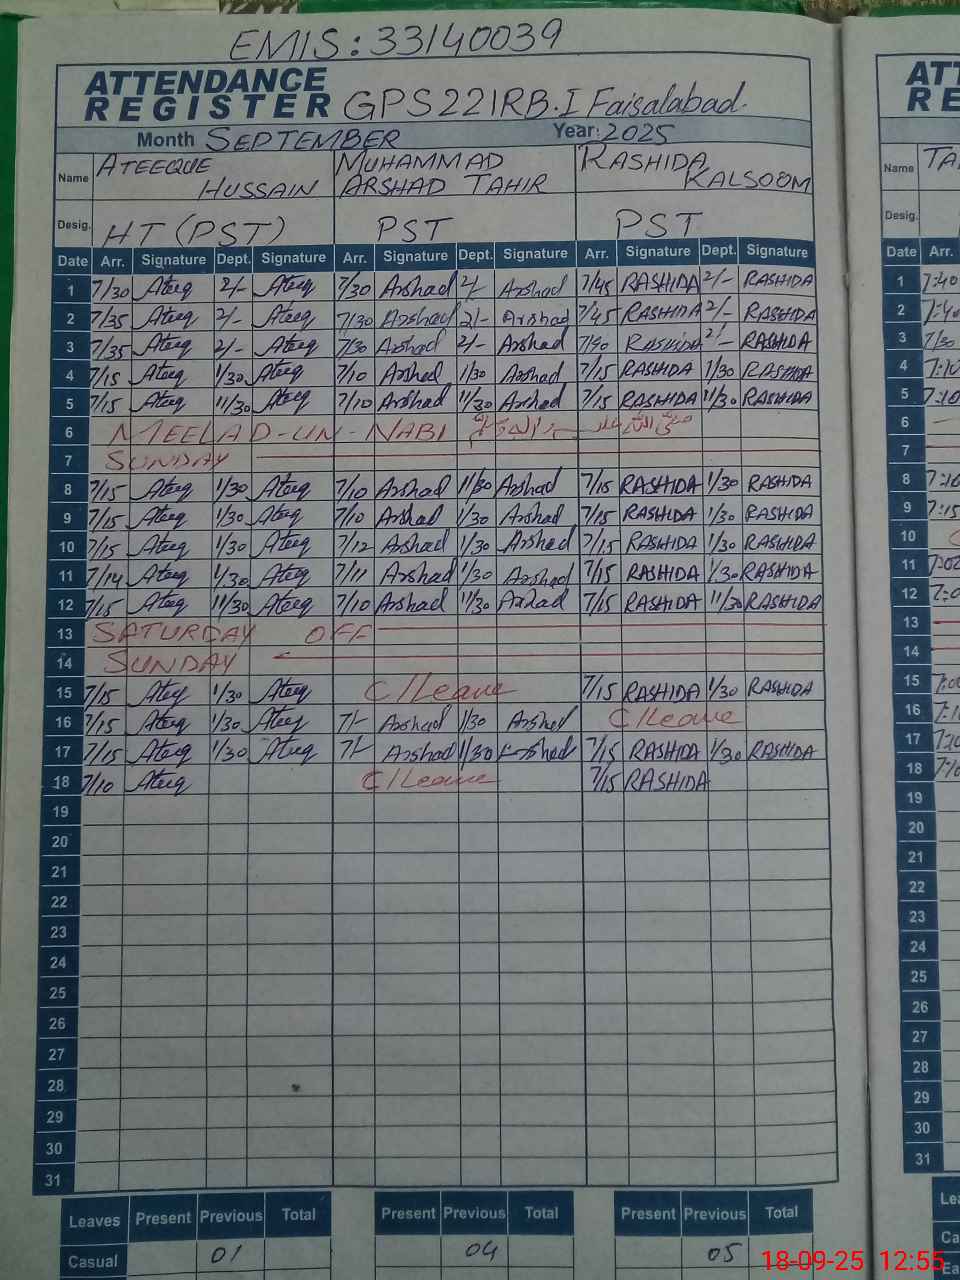 EMIS: 33140039
ATTENDANCE
REGISTER GPS 221RB.I Faisalabad.
Month SEPTEMBER Year: 2025
Name ATEEQUE HUSSAIN MUHAMMAD ARSHAD TAHIR RASHIDA KALSOOM
Desig. HT (PST) PST PST
Date Arr. Signature Dept. Signature Arr. Signature Dept. Signature Arr. Signature Dept. Signature
1 7/30 Ateeq 2/- Ateeq 7/30 Arshad 2/- Arshad 7/45 RASHIDA 2/- RASHIDA
2 7/35 Ateeq 2/- Ateeq 7/30 Arshad 2/- Arshad 7/45 RASHIDA 2/- RASHIDA
3 7/35 Ateeq 2/- Ateeq 7/30 Arshad 2/- Arshad RASHIDA 2/- RASHIDA
4 7/15 Ateeq 1/30 Ateeq 7/10 Arshad 1/30 Arshad 7/15 RASHIDA 1/30 RASHIDA
5 7/15 Ateeq 11/30 Ateeq 7/10 Arshad 11/30 Arshad 7/15 RASHIDA 11/30 RASHIDA
6 MEELAD-UN-NABI
7 SUNDAY
8 7/15 Ateeq 1/30 Ateeq 7/10 Arshad 11/30 Arshad 7/15 RASHIDA 1/30 RASHIDA
9 7/15 Ateeq 1/30 Ateeq 7/10 Arshad 1/30 Arshad 7/15 RASHIDA 1/30 RASHIDA
10 7/15 Ateeq 1/30 Ateeq 7/12 Arshad 1/30 Arshad 7/15 RASHIDA 1/30 RASHIDA
11 7/14 Ateeq 1/30 Ateeq 7/11 Arshad 1/30 Arshad 7/15 RASHIDA 1/30 RASHIDA
12 7/15 Ateeq 11/30 Ateeq 7/10 Arshad 11/30 Arshad 7/15 RASHIDA 11/30 RASHIDA
13 SATURDAY OFF
14 SUNDAY
15 7/15 Ateeq 1/30 Ateeq C/Leave 7/15 RASHIDA 1/30 RASHIDA
16 7/15 Ateeq 1/30 Ateeq 7/- Arshad 1/30 Arshad C/Leave
17 7/15 Ateeq 1/30 Ateeq 7/- Arshad 1/30 Arshad 7/15 RASHIDA 1/30 RASHIDA
18 7/10 Ateeq C/Leave 7/15 RASHIDA
19
20
21
22
23
24
25
26
27
28
29
30
31
Leaves Present Previous Total Present Previous Total Present Previous Total
Casual 01 04 05
Name TA
Desig.
Date Arr.
1 7:40
2
3 7/30
4
5 7:10
6
7
8 7:10
9 7:15
10
11
12
13
14
15
16
17
18
19
20
21
22
23
24
25
26
27
28
29
30
31
18-09-25 12:55